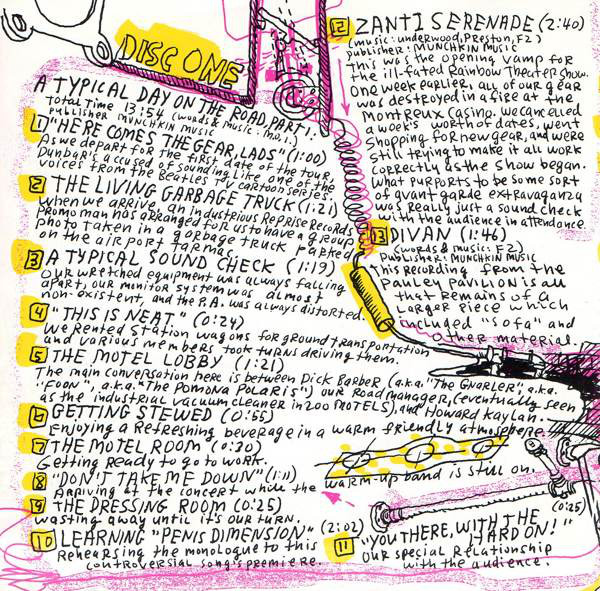 DISC ONE
A TYPICAL DAY ON THE ROAD, PART 1.
Total Time 13:54 (words & music: M.O.I.)
Publisher MUNCHKIN MUSIC
1 "HERE COMES THE GEAR, LADS" (1:00)
As we depart for the first date of the tour,
Dunbar's accused of sounding like one of the
voices from the Beatles TV cartoon series.
2 THE LIVING GARBAGE TRUCK (1:21)
When we arrive, an industrious Reprise Records
Promo man has arranged for us to have a group
photo taken in a garbage truck parked
on the airport tarmac.
3 A TYPICAL SOUND CHECK (1:19)
Our wretched equipment was always falling
apart, our monitor system was almost
non-existent, and the P.A. was always distorted.
4 "THIS IS NEAT" (0:24)
We rented station wagons for ground transportation
and various members took turns driving them.
5 THE MOTEL LOBBY (1:21)
The main conversation here is between Dick Barber (a.k.a. "The GNARLER", a.k.a.
"FOON", a.k.a. "The POMONA POLARIS") our Road manager, (eventually seen
as the industrial vacuum cleaner in 200 MOTELS), and Howard Kaylan.
6 GETTING STEWED (0:55)
Enjoying a refreshing beverage in a warm friendly atmosphere.
7 THE MOTEL ROOM (0:30)
Getting ready to go to work.
8 "DON'T TAKE ME DOWN" (1:11)
Arriving at the concert while the
warm-up band is still on.
9 THE DRESSING ROOM (0:25)
wasting away until it's our turn.
10 LEARNING "PENIS DIMENSION" (2:02)
Rehearsing the monologue to this
controversial song's premiere.
11 "YOU THERE, WITH THE
HARD ON!" (0:25)
Our special relationship
with the audience.
12 ZANTI SERENADE (2:40)
(music: underwood, Preston, FZ)
publisher: MUNCHKIN MUSIC
This was the opening vamp for
the ill-fated Rainbow Theater Show.
One week earlier, all of our gear
was destroyed in a fire at the
Montreux Casino. we cancelled
a week's worth of dates, went
shopping for new gear, and were
still trying to make it all work
correctly as the show began.
What purports to be some sort
of avant garde extravaganza
was really just a sound check
with the audience in attendance.
13 DIVAN (1:46)
(words & music: FZ)
Publisher: MUNCHKIN MUSIC
This recording from the
Pauley Pavilion is all
that remains of a
larger piece which
included "sofa" and
other material.